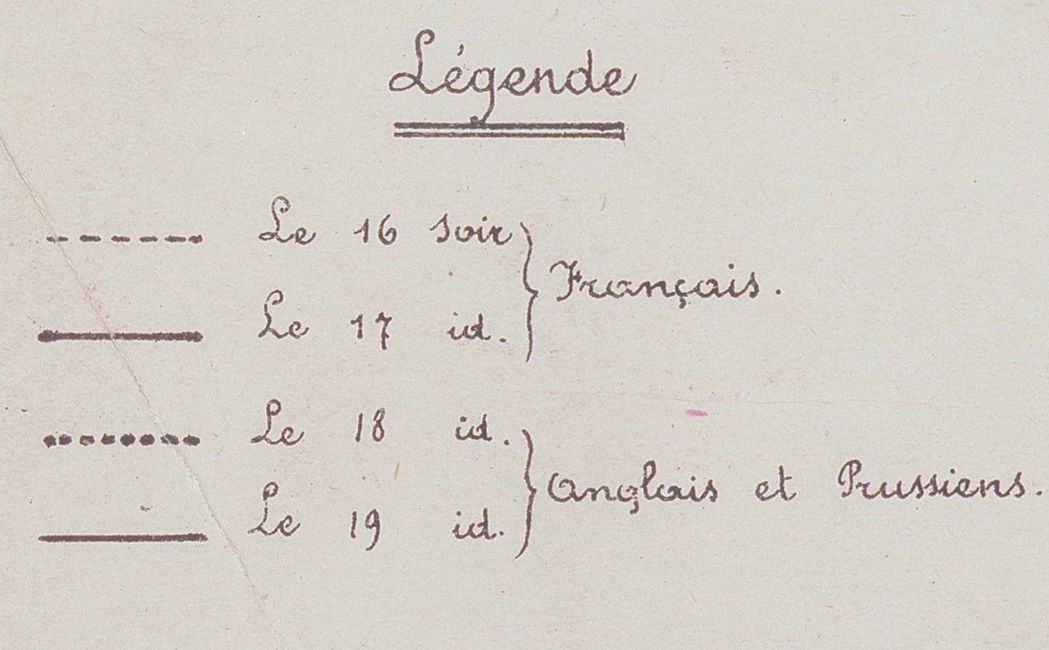 Légende
Le 16 soir
Français.
Le 17 id.
Le 18 id.
Anglais et Prussiens.
Le 19 id.